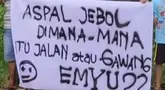 ASPAL JEBOL
DIMANA-MANA
ITU JALAN atau GAWANG
EMYU??